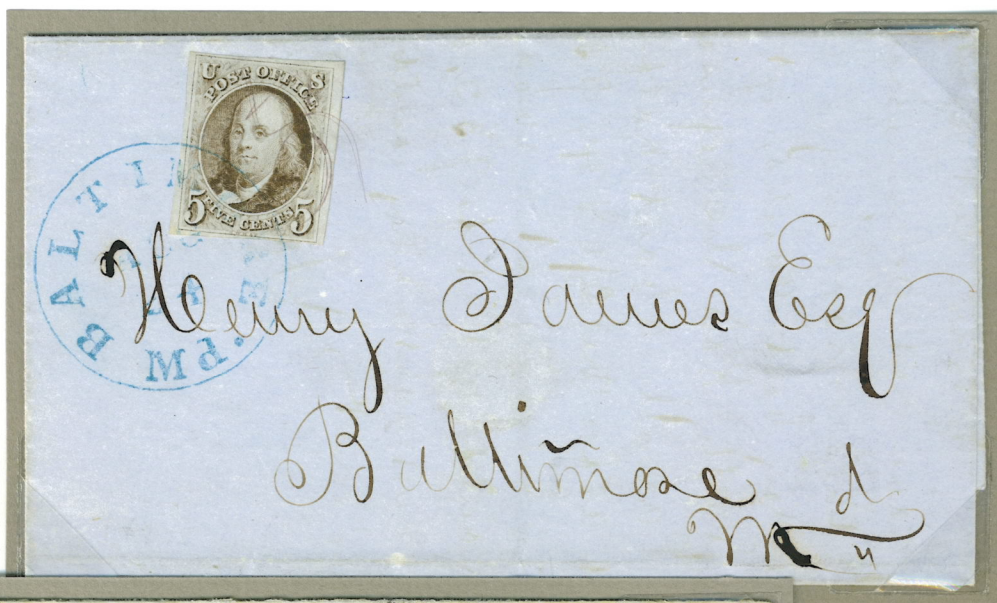 U S
POST OFFICE
5 FIVE CENTS 5
BALTIMORE
PM
Henry James Esq
Baltimore
Md